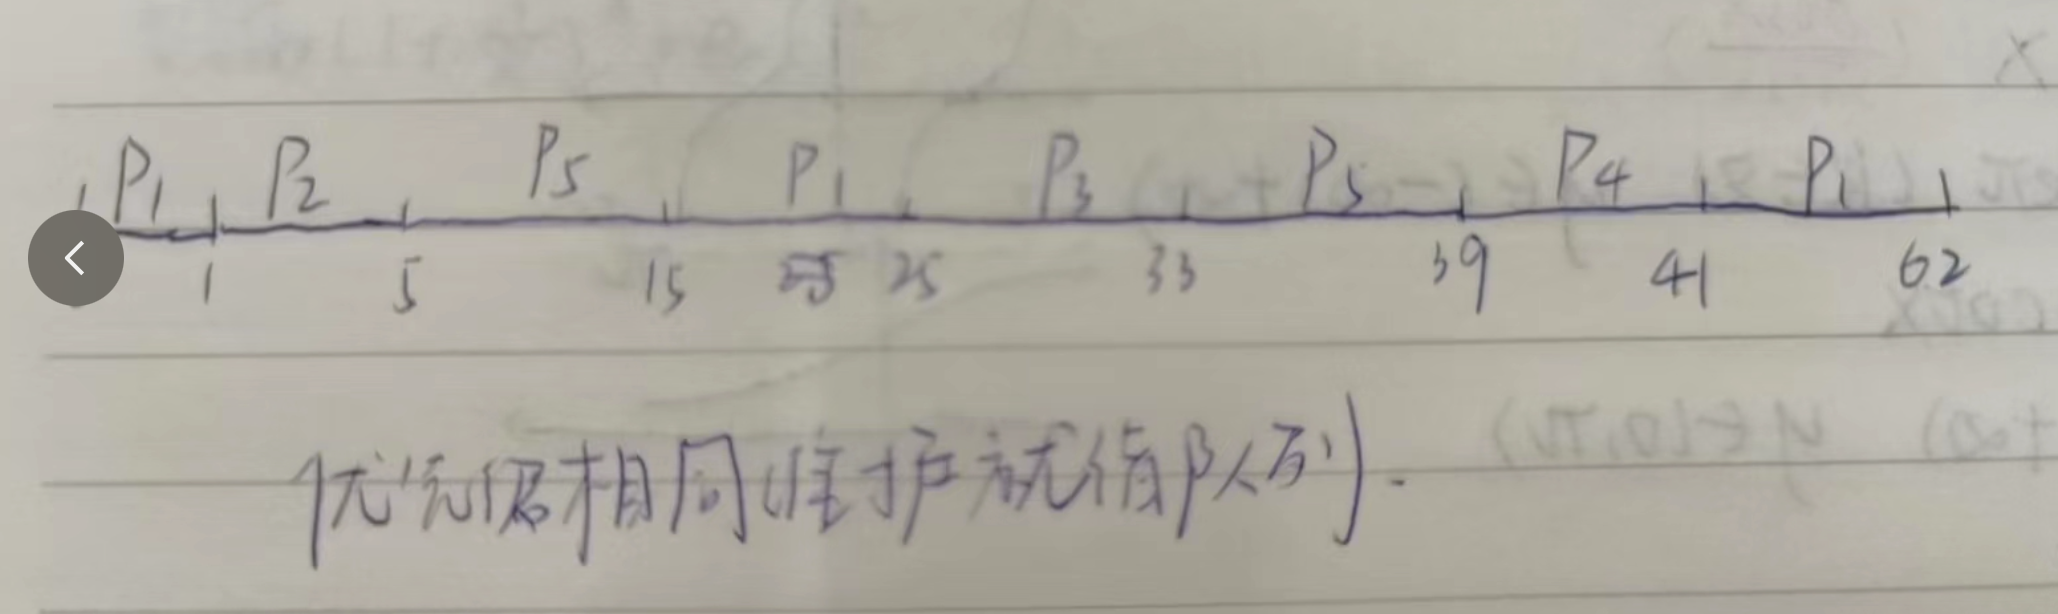 P1 P2 P5 P1 P3 P5 P4 P1
1 5 15 25 33 39 41 62
优先级相同维护就绪队列.